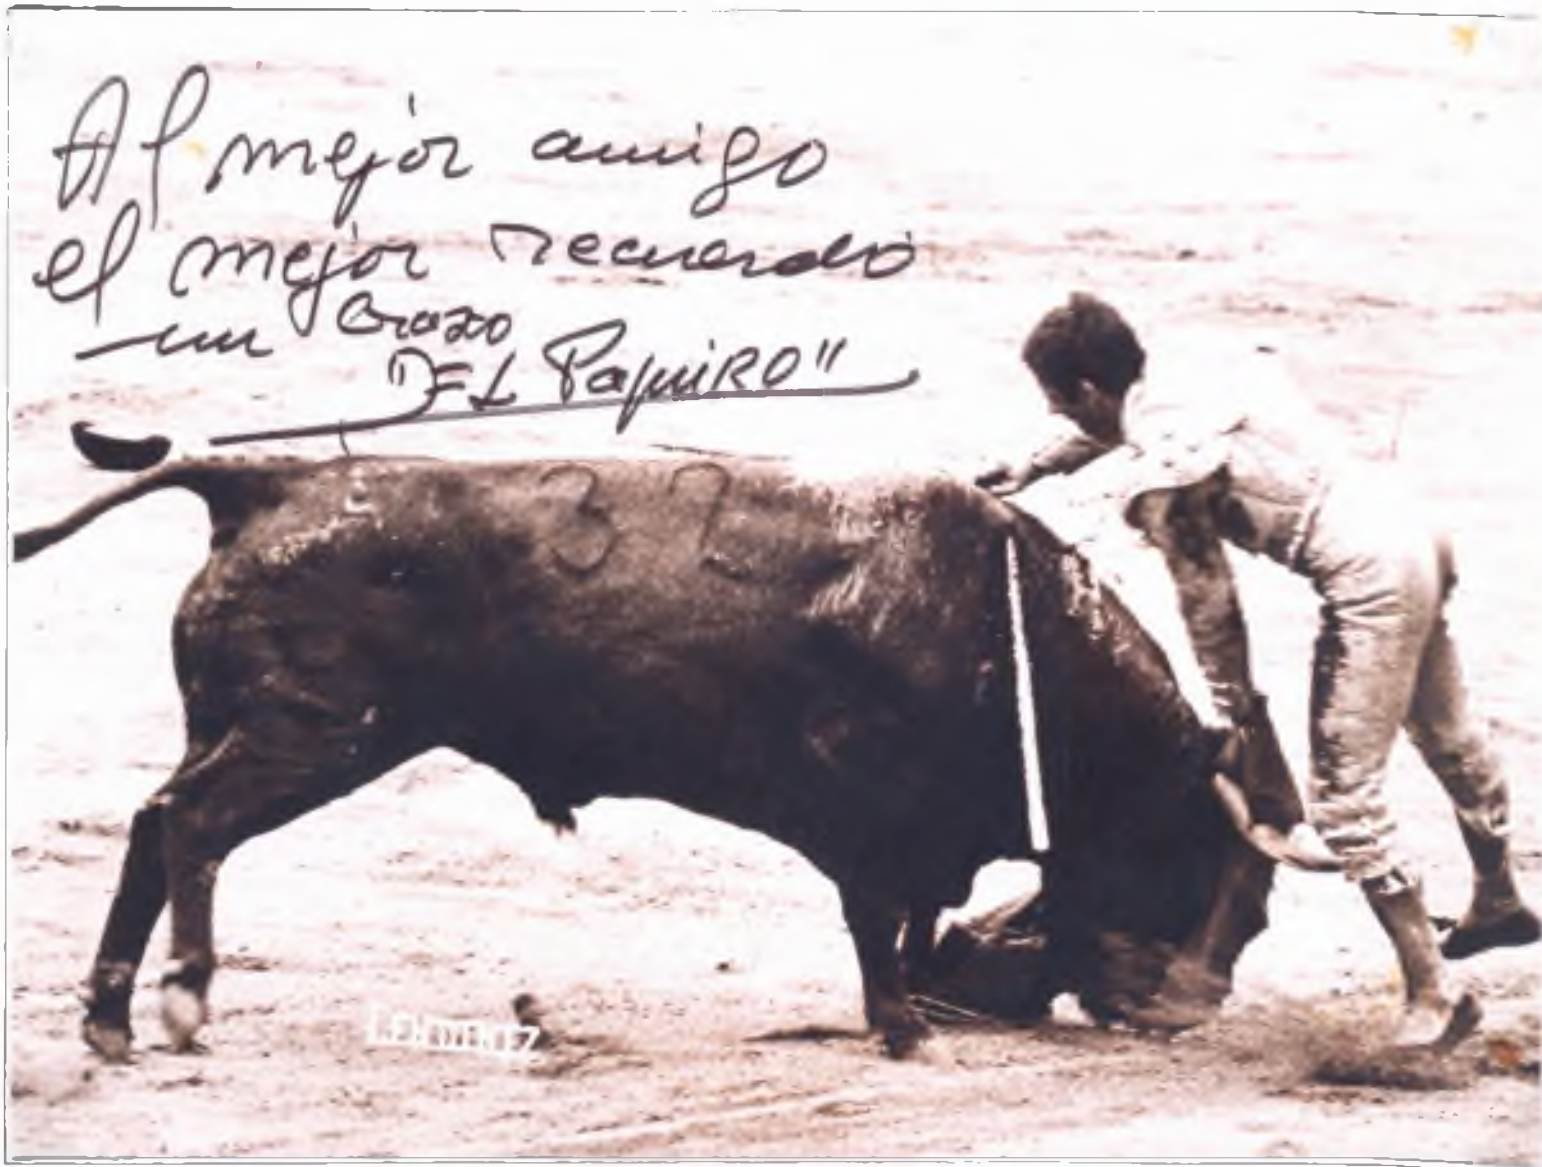 Al mejor amigo
el mejor recuerdo
un abrazo
DEL PaquiRO"
32
LENDINEZ